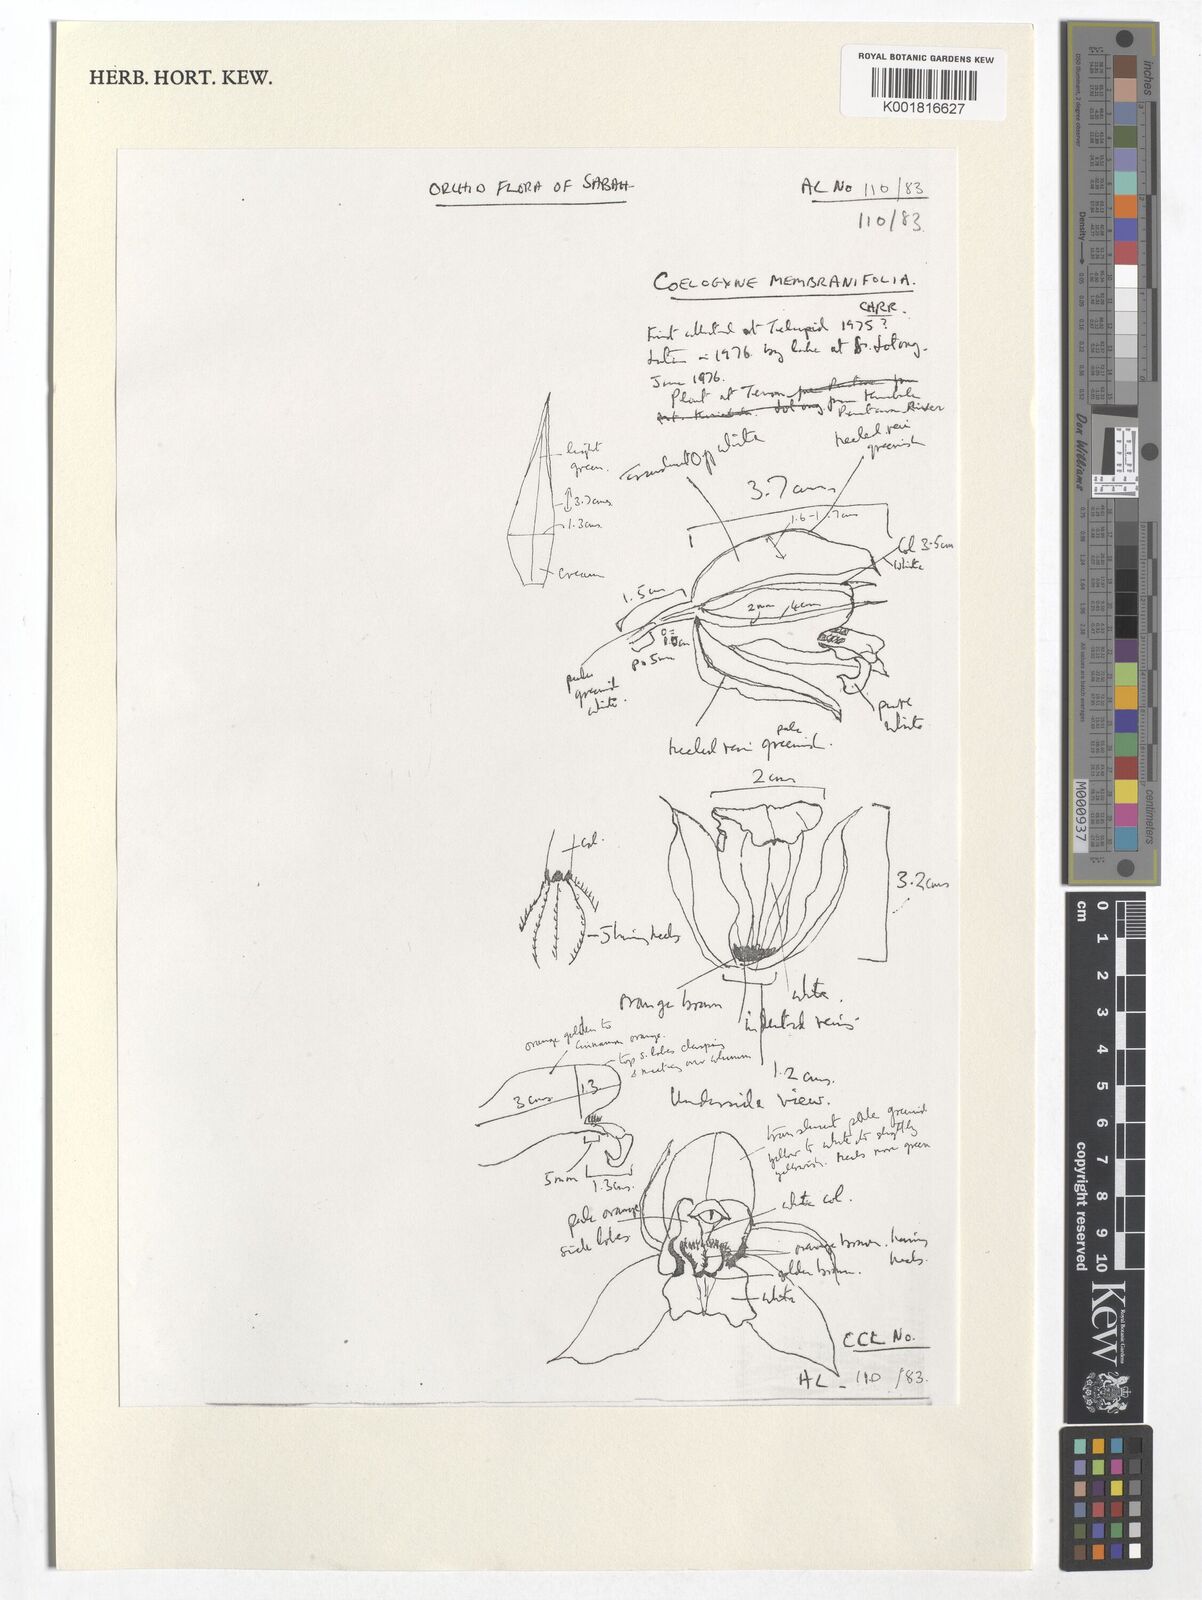 HERB. HORT. KEW.
ROYAL BOTANIC GARDENS KEW
K001816627
ORCHID FLORA OF SABAH
AL No 110/83
110/83
COELOGYNE MEMBRANIFOLIA.
CARR.
First collected at Telupid 1975?
Later in 1976 by lake at
June 1976.
Plant at Tenom from
River
light green.
3.7cms
1.3cms
cream
white
keeled vein greenish
3.7cms
1.6-1.7cms
Col 3.5cm
white
1.5cm
2mm
4cm
5mm
pale greenish white.
pure white
keeled vein pale greenish.
2cms
col.
3.2cms
orange brown
white.
indented veins
1.2cms.
Underside view.
orange golden to cinnamon orange.
top s. lobes clasping
& meeting over column
3cms
1.3
5mm
1.3cms.
translucent pale greenish
yellow to white to slightly
yellowish. keels more green
pale orange side lobes
white col.
orange brown.
keels.
golden brown.
white
AL - 110 /83.
inches
centimeters
Density
Don Williams
M000937
cm
0
1
2
3
4
5
6
7
8
9
10
copyright reserved
Kew
Royal Botanic Gardens